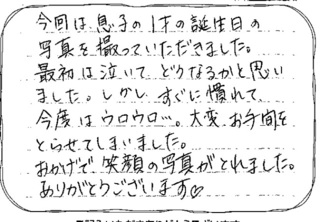 今回は息子の1才の誕生日の
写真を撮っていただきました。
最初は泣いてどうなるかと思い
ました。しかし、すぐに慣れて
今度はウロウロ…。大変お手間を
とらせてしまいました。
おかげで笑顔の写真がとれました。
ありがとうございます♡